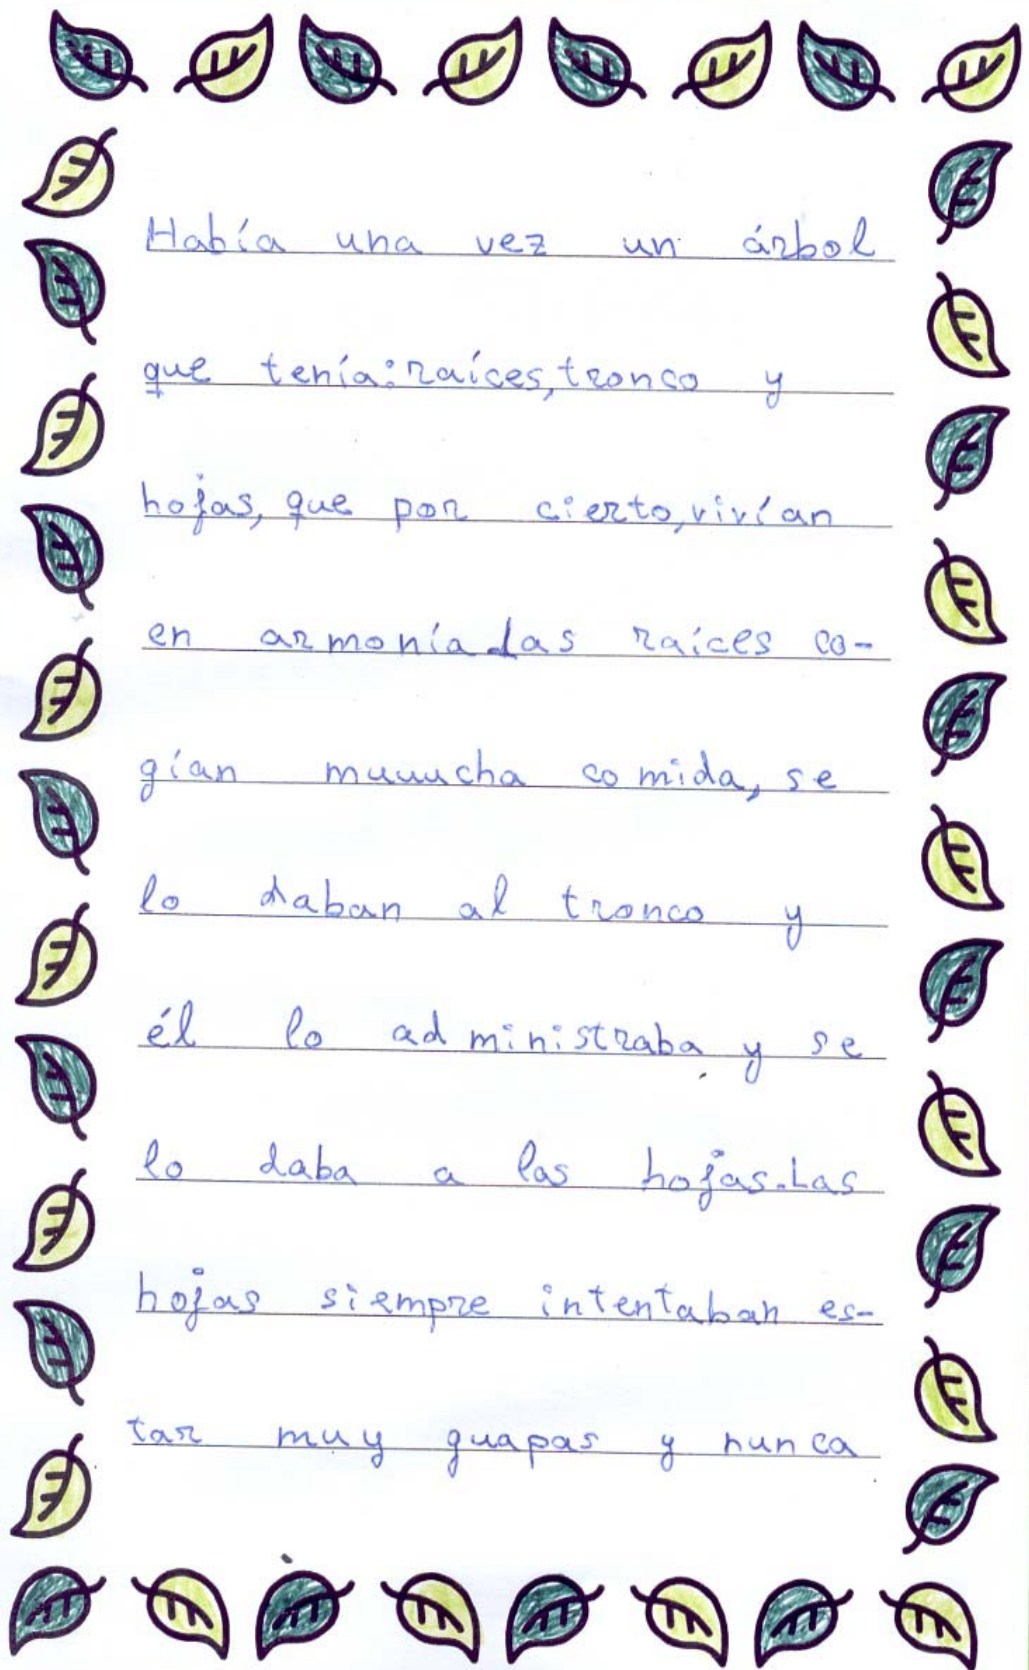 Había una vez un árbol
que tenía: raíces, tronco y
hojas, que por cierto, vivían
en armonía. Las raíces co-
gían muuucha comida, se
lo daban al tronco y
él lo administraba y se
lo daba a las hojas. Las
hojas siempre intentaban es-
tar muy guapas y nunca